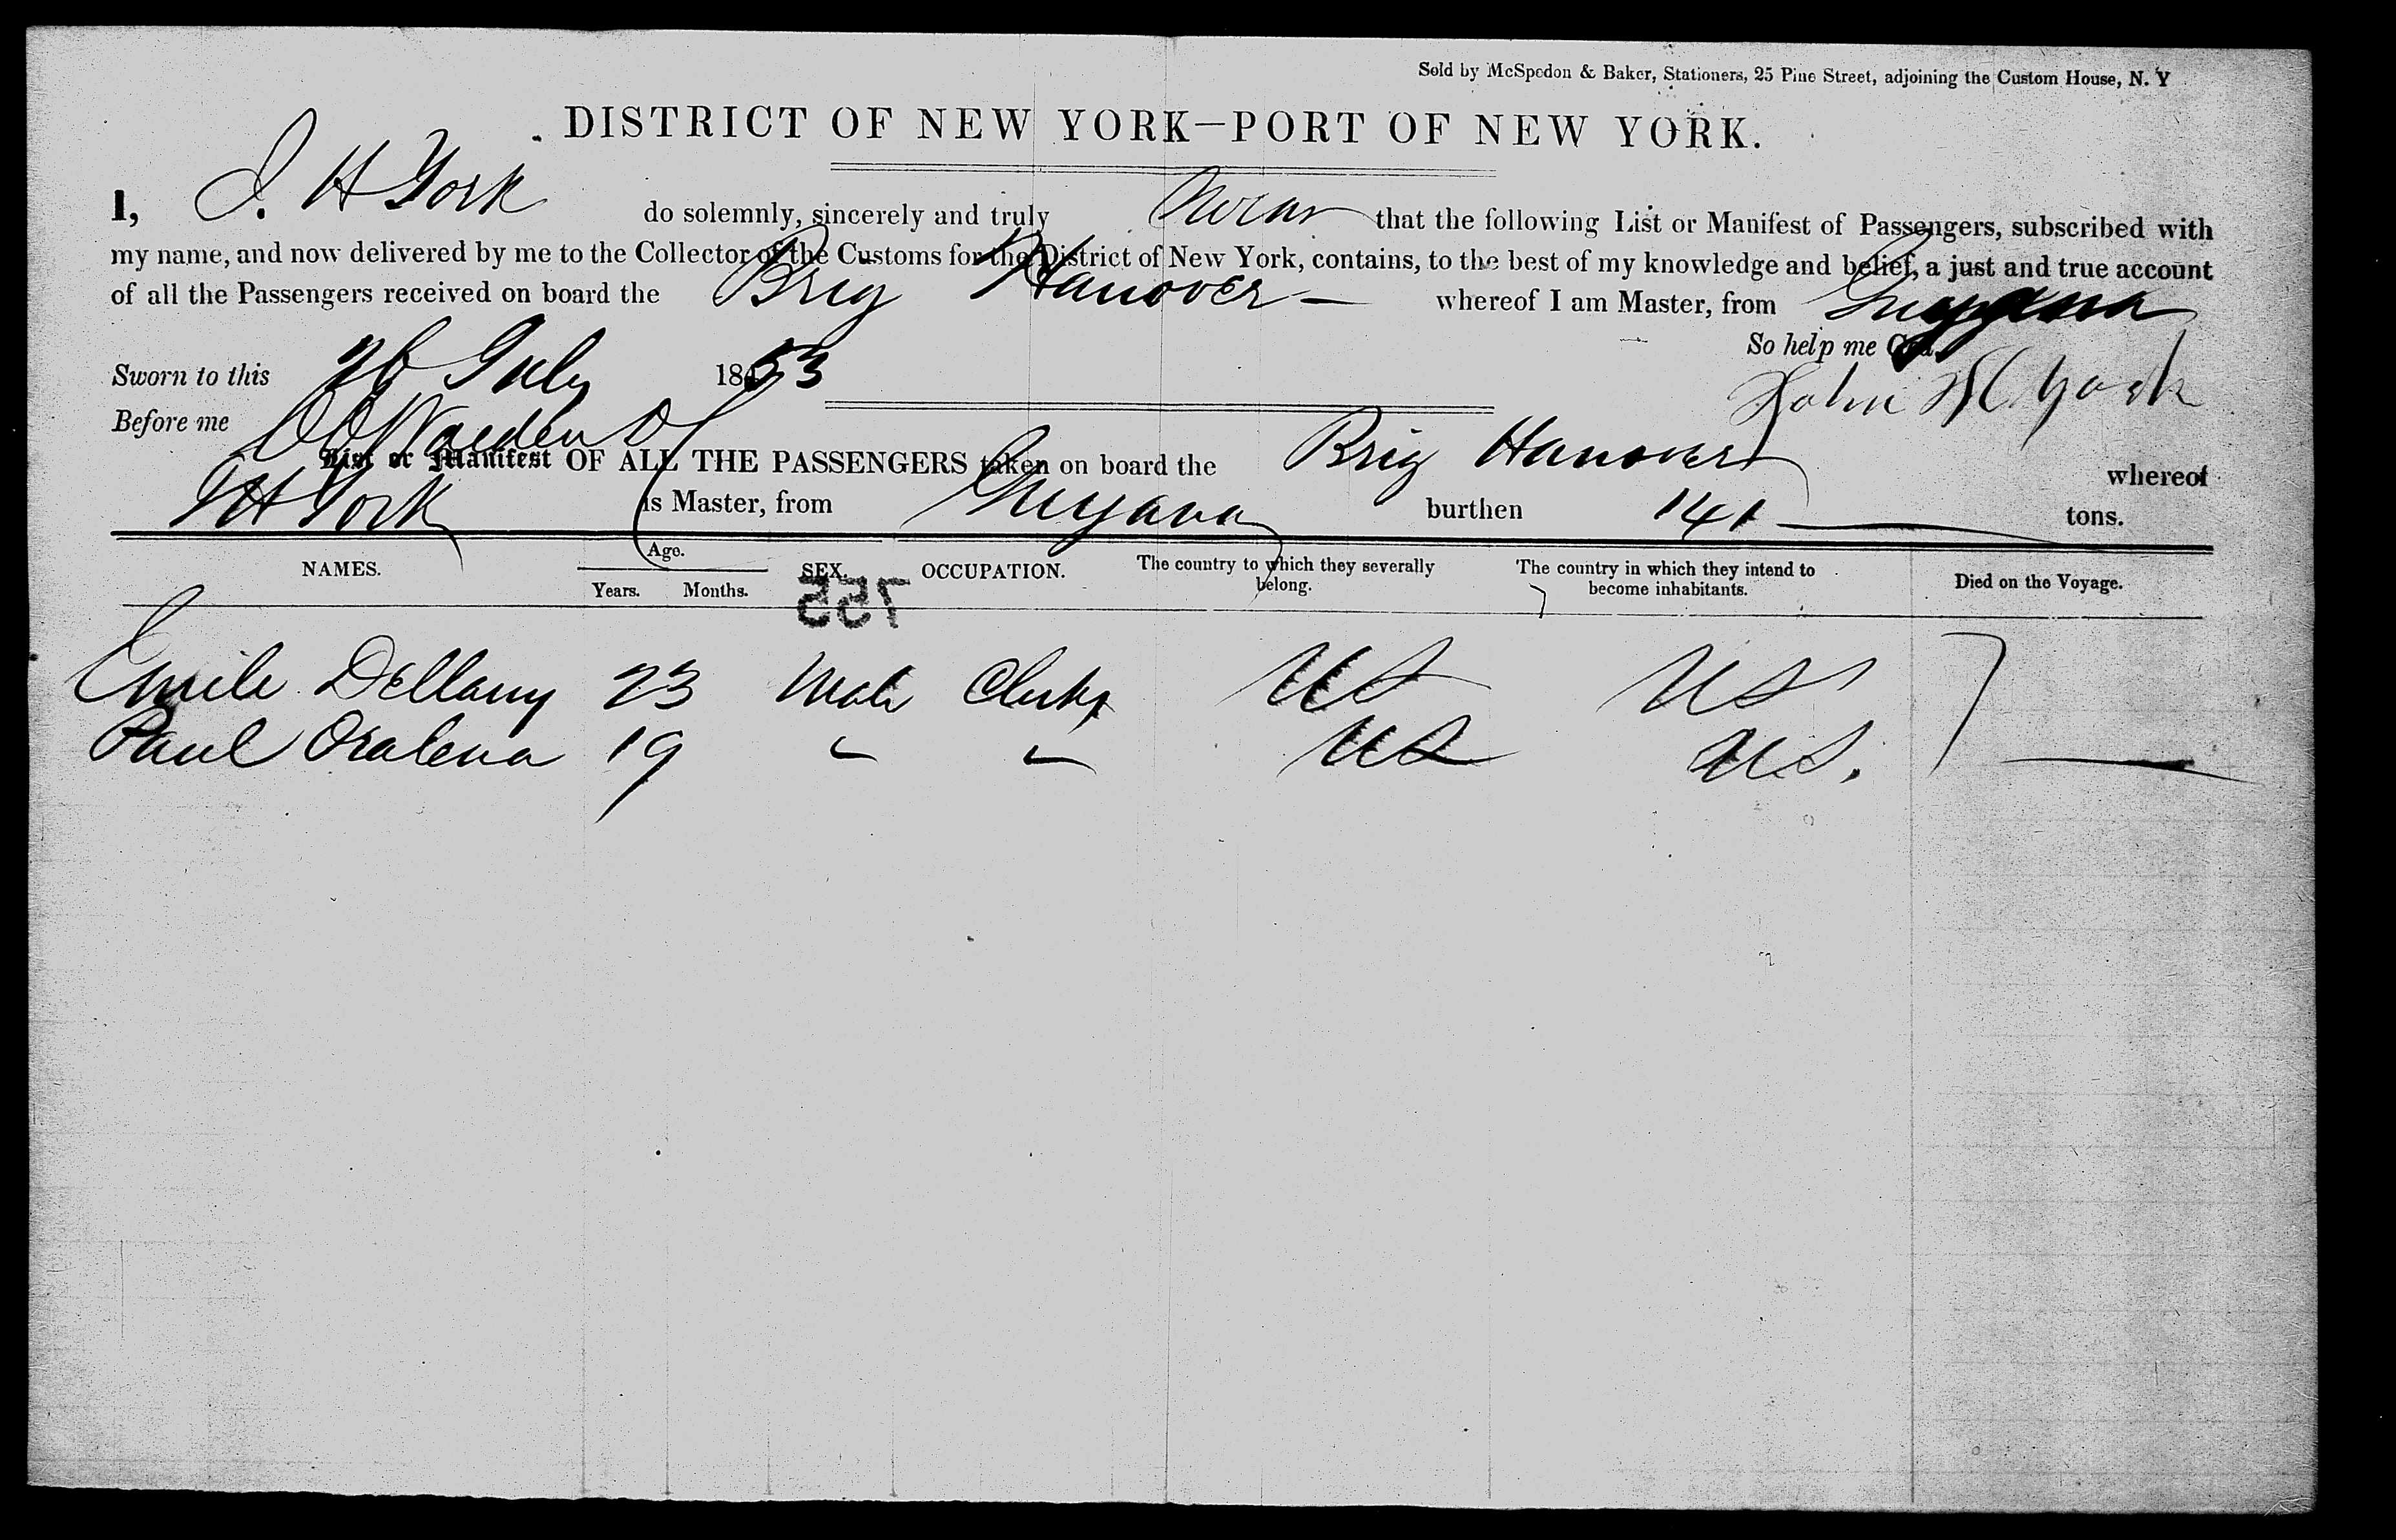 Sold by McSpedon & Baker, Stationers, 25 Pine Street, adjoining the Custom House, N. Y
DISTRICT OF NEW YORK—PORT OF NEW YORK.
I, J. H York do solemnly, sincerely and truly swear that the following List or Manifest of Passengers, subscribed with
my name, and now delivered by me to the Collector of the Customs for the District of New York, contains, to the best of my knowledge and belief, a just and true account
of all the Passengers received on board the Brig Hanover — whereof I am Master, from Guyana
So help me God.
Sworn to this 26 July 1853
John H York
Before me
List or Manifest OF ALL THE PASSENGERS taken on board the Brig Hanover whereof
J H York is Master, from Guyana burthen 141 tons.
NAMES. Age. Years. Months. SEX. OCCUPATION. The country to which they severally belong. The country in which they intend to become inhabitants. Died on the Voyage.
755
Emile Dellamy 23 Male Clerks US US
Paul Oralena 19 " " US U.S.